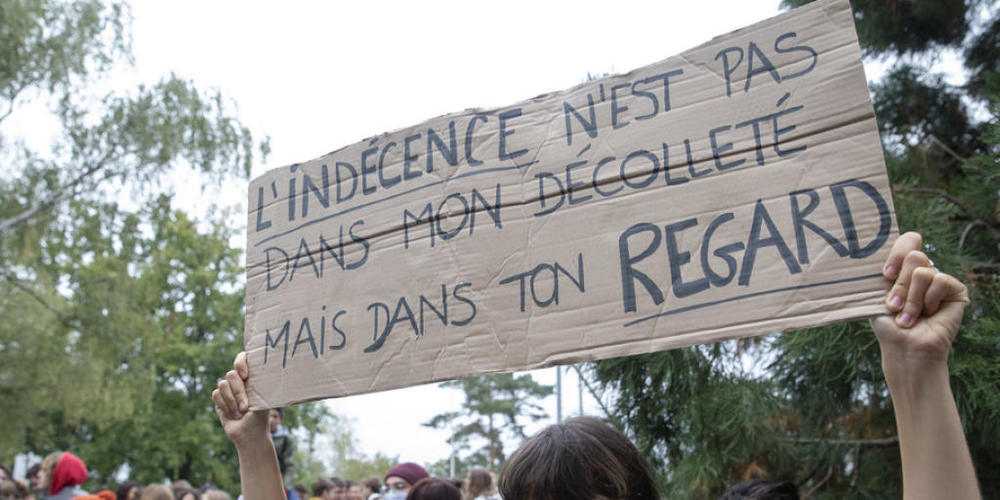 L'INDÉCENCE N'EST PAS
DANS MON DÉCOLLETÉ
MAIS DANS TON REGARD